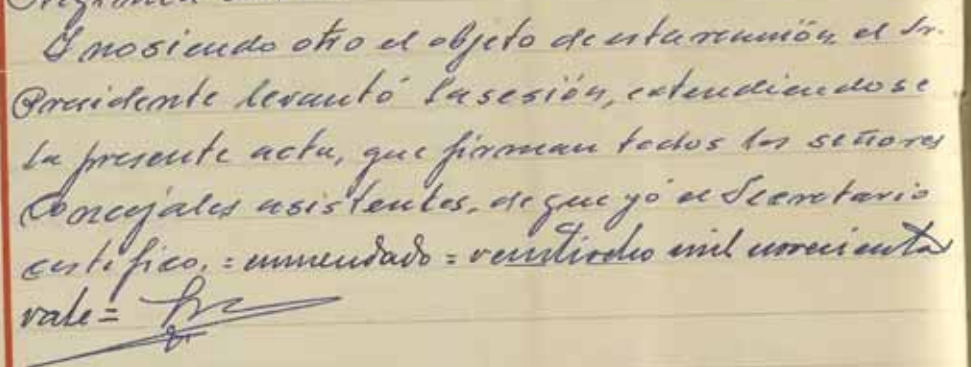 Y no siendo otro el objeto de esta reunión, el Sr.
Presidente levantó la sesión, extendiendose
la presente acta, que firman todos los señores
Concejales asistentes, de que yó el Secretario
certifico. = enmendado = veintiocho mil novecientas
vale =